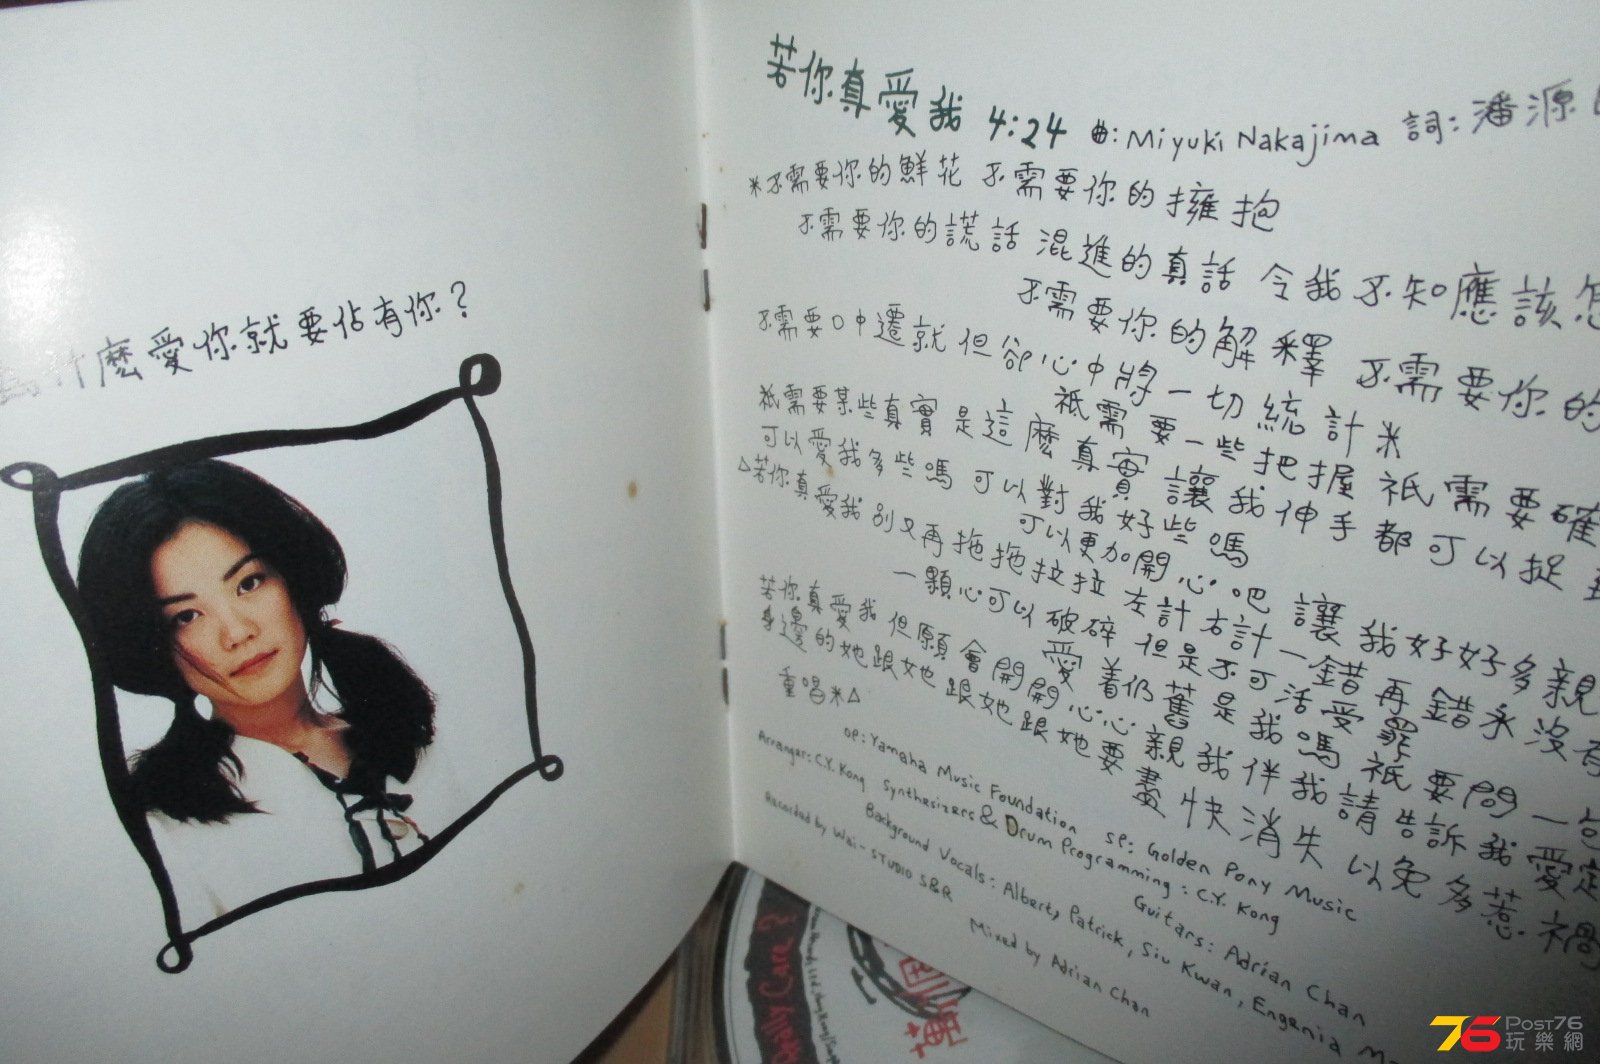 什麼愛你就要佔有你？
若你真愛我 4:24 曲:Miyuki Nakajima 詞:潘源
*不需要你的鮮花 不需要你的擁抱
不需要你的謊話 混進的真話 令我不知應該怎
不需要你的解釋 不需要你的
不需要口中遷就 但卻心中將一切統計*
祇需要一些把握 祇需要確
祇需要某些真實 是這麼真實 讓我伸手都可以捉
可以愛我多些嗎 可以對我好些嗎
可以更加開心吧 讓我好好多親
△若你真愛我 別又再拖拖拉拉 左計右計 一錯再錯永沒有
一顆心可以破碎 但是不可活受罪
若你真愛我 但願會開開心心親我伴我 請告訴我愛
愛着仍舊是我嗎 祇要問一
身邊的她跟她 跟她跟她要盡快消失 以免多惹禍
重唱*△
OP: Yamaha Music Foundation SP: Golden Pony Music
Arranger: C.Y. Kong Synthesizers & Drum Programming: C.Y. Kong
Guitars: Adrian Chan
Background Vocals: Albert, Patrick, Siu Kwan, Engenia
Recorded by Wai-STUDIO S&R
Mixed by Adrian Chan
Really Care?
76 Post76
玩樂網